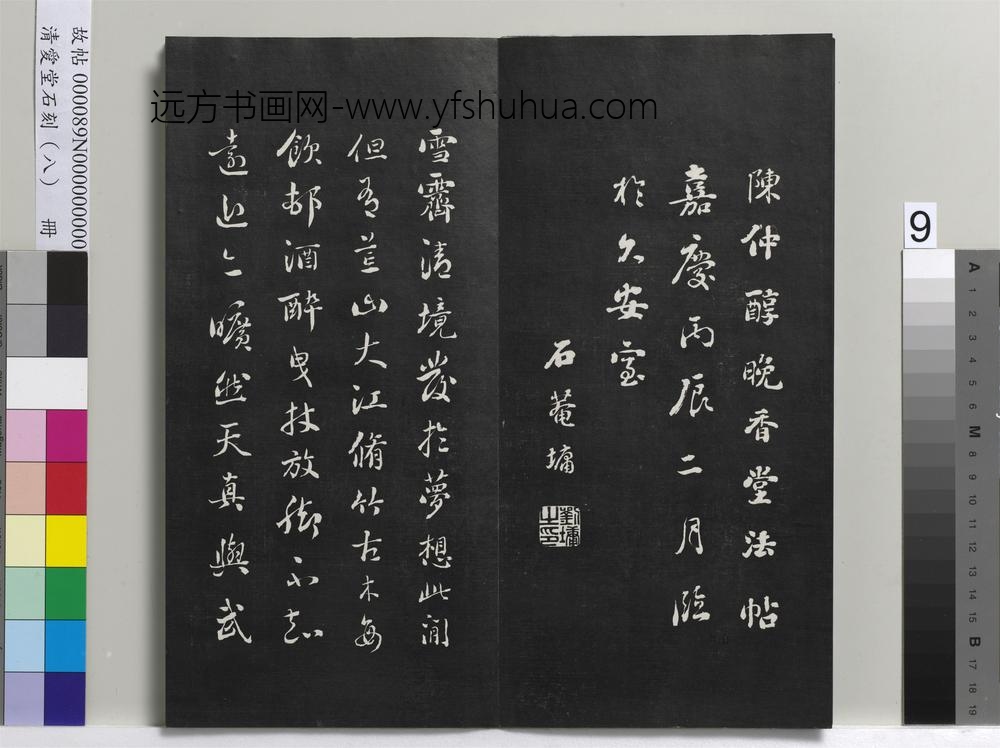 陳仲醇晚香堂法帖
嘉慶丙辰二月臨
於久安室
石菴墉
劉墉之印
雪霽清境發於夢想此間
但有荒山大江脩竹古木每
飲邨酒醉曳杖放腳不知
遠近亦曠然天真與武
远方书画网-www.yfshuhua.com
故帖 000089N000000000
清愛堂石刻（八） 冊
9
A 1 2 3 4 5 6 M 8 9 10 11 12 13 14 15 B 17 18 19